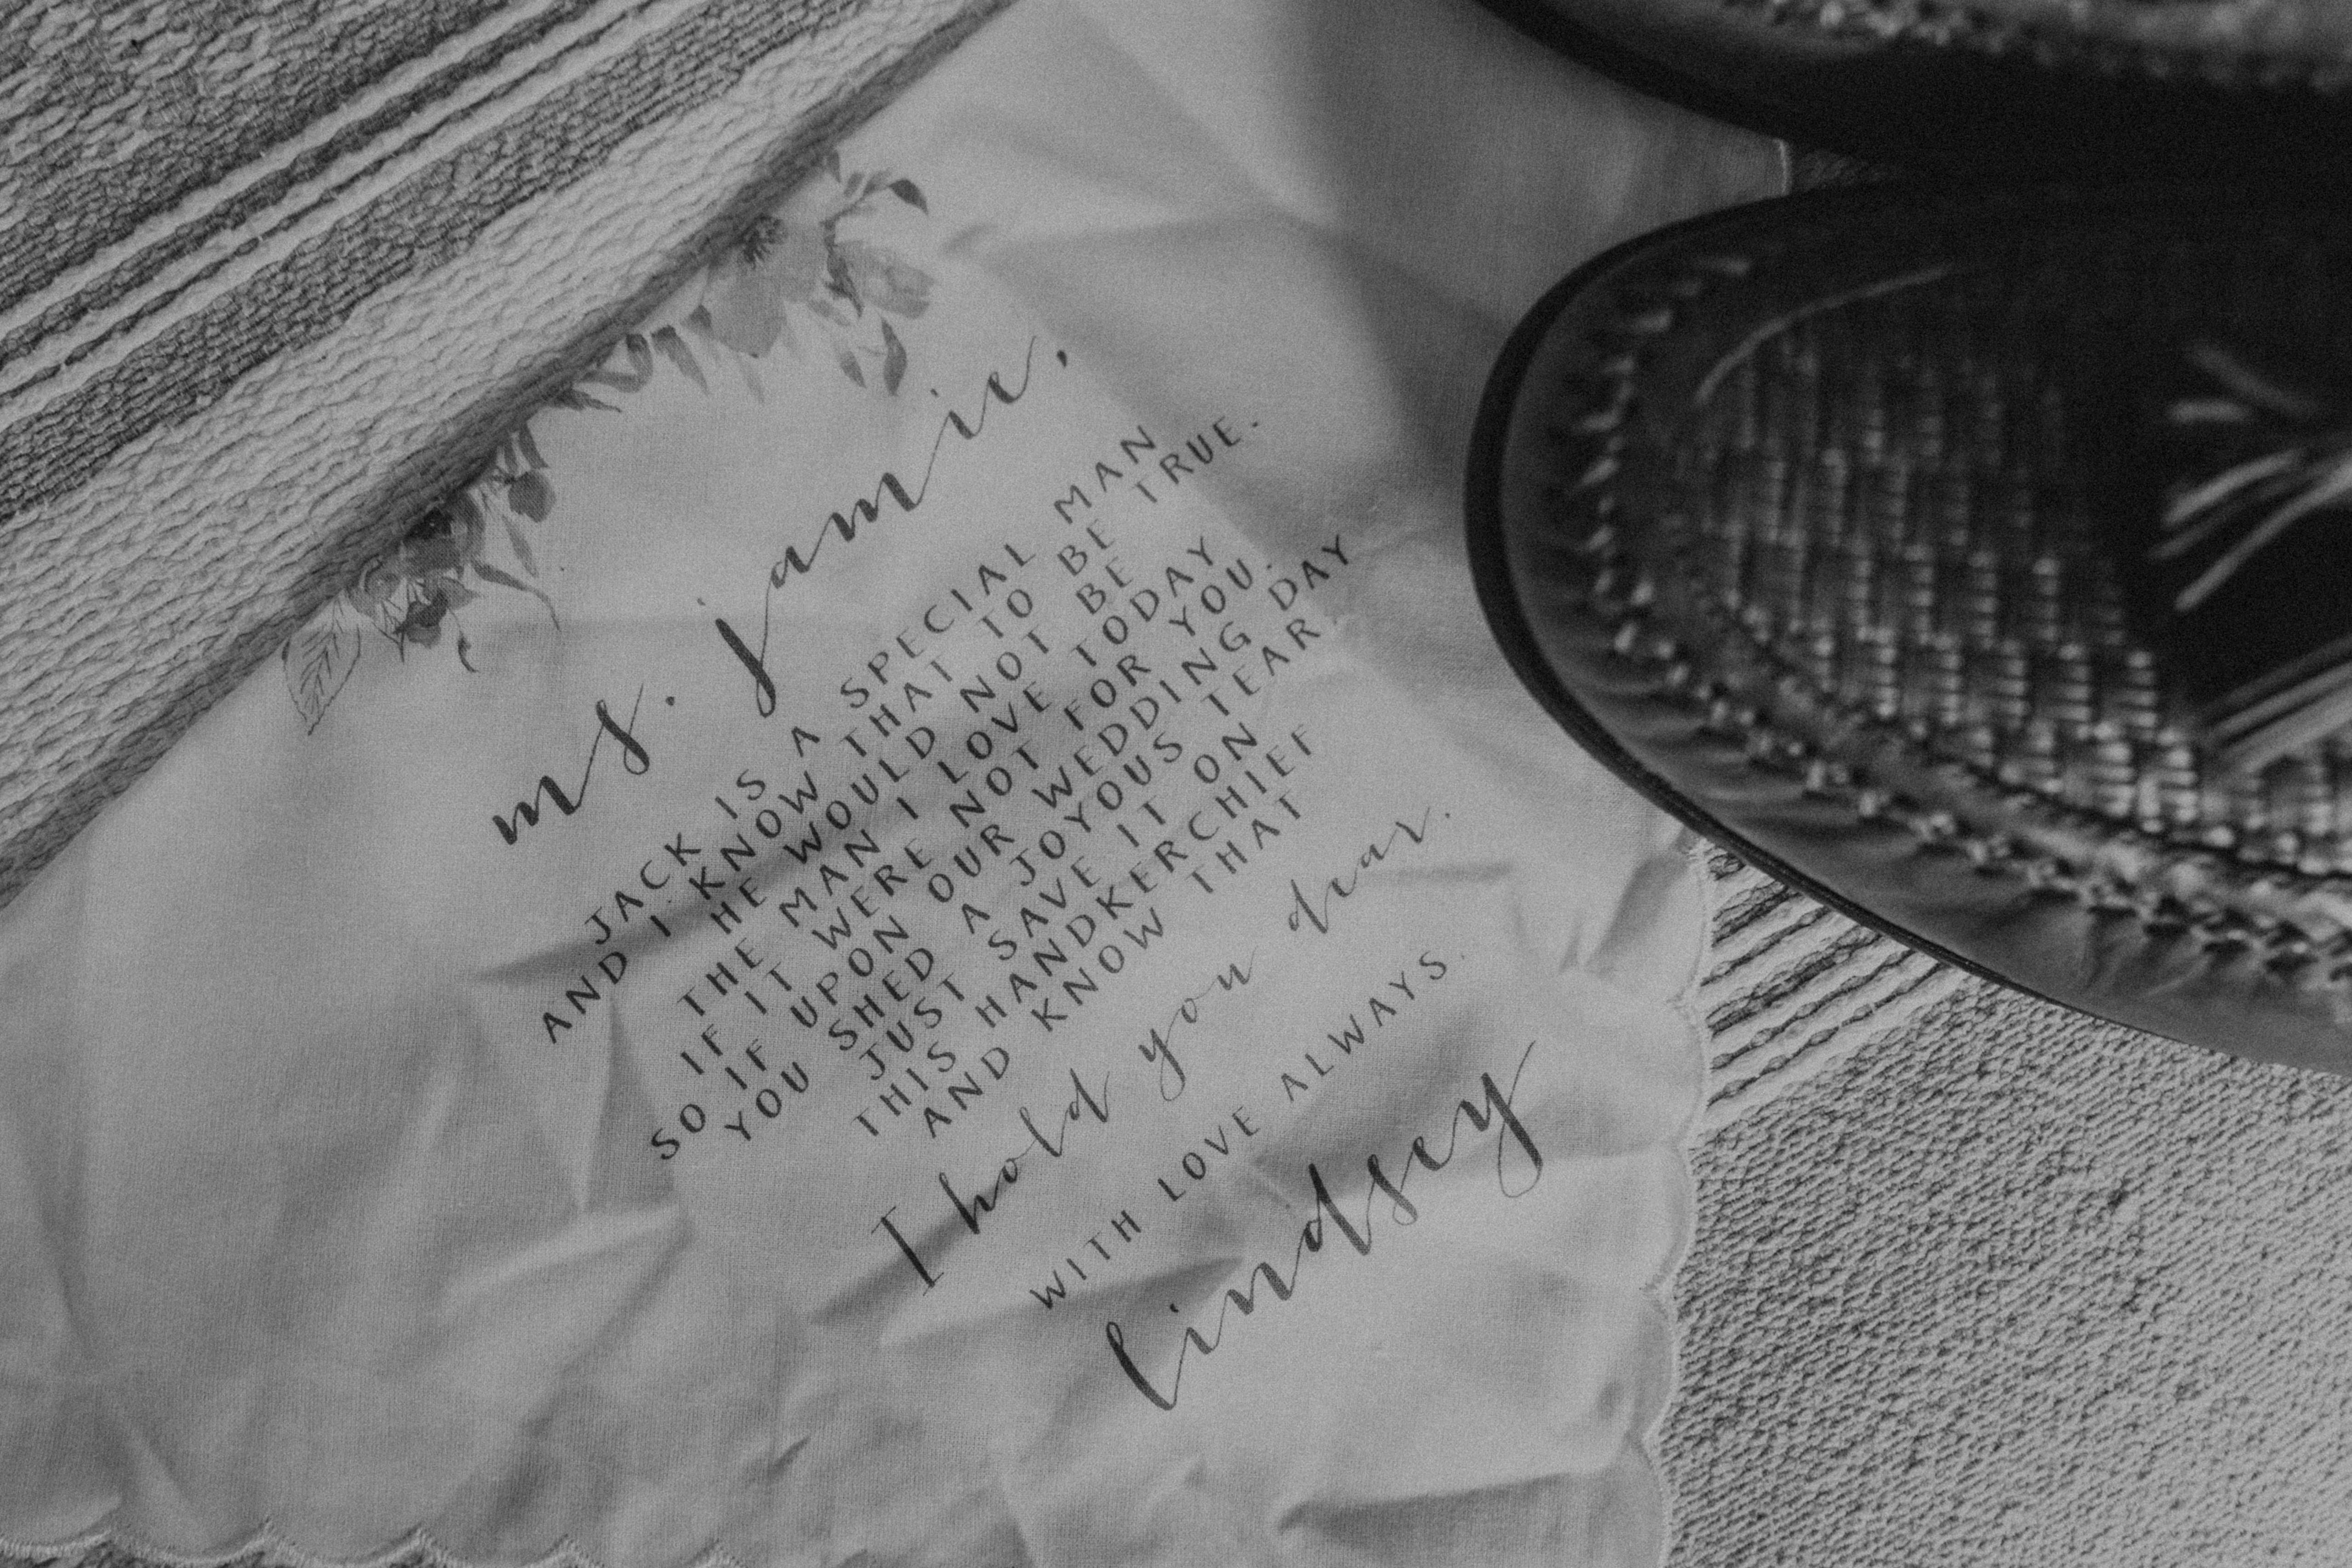 ms. jamie,
JACK IS A SPECIAL MAN
AND I KNOW THAT TO BE TRUE.
HE WOULD NOT BE
THE MAN I LOVE TODAY
IF IT WERE NOT FOR YOU.
SO IF UPON OUR WEDDING DAY
YOU SHED A JOYOUS TEAR,
JUST SAVE IT ON
THIS HANDKERCHIEF
AND KNOW THAT
I hold you dear.
WITH LOVE ALWAYS.
lindsey